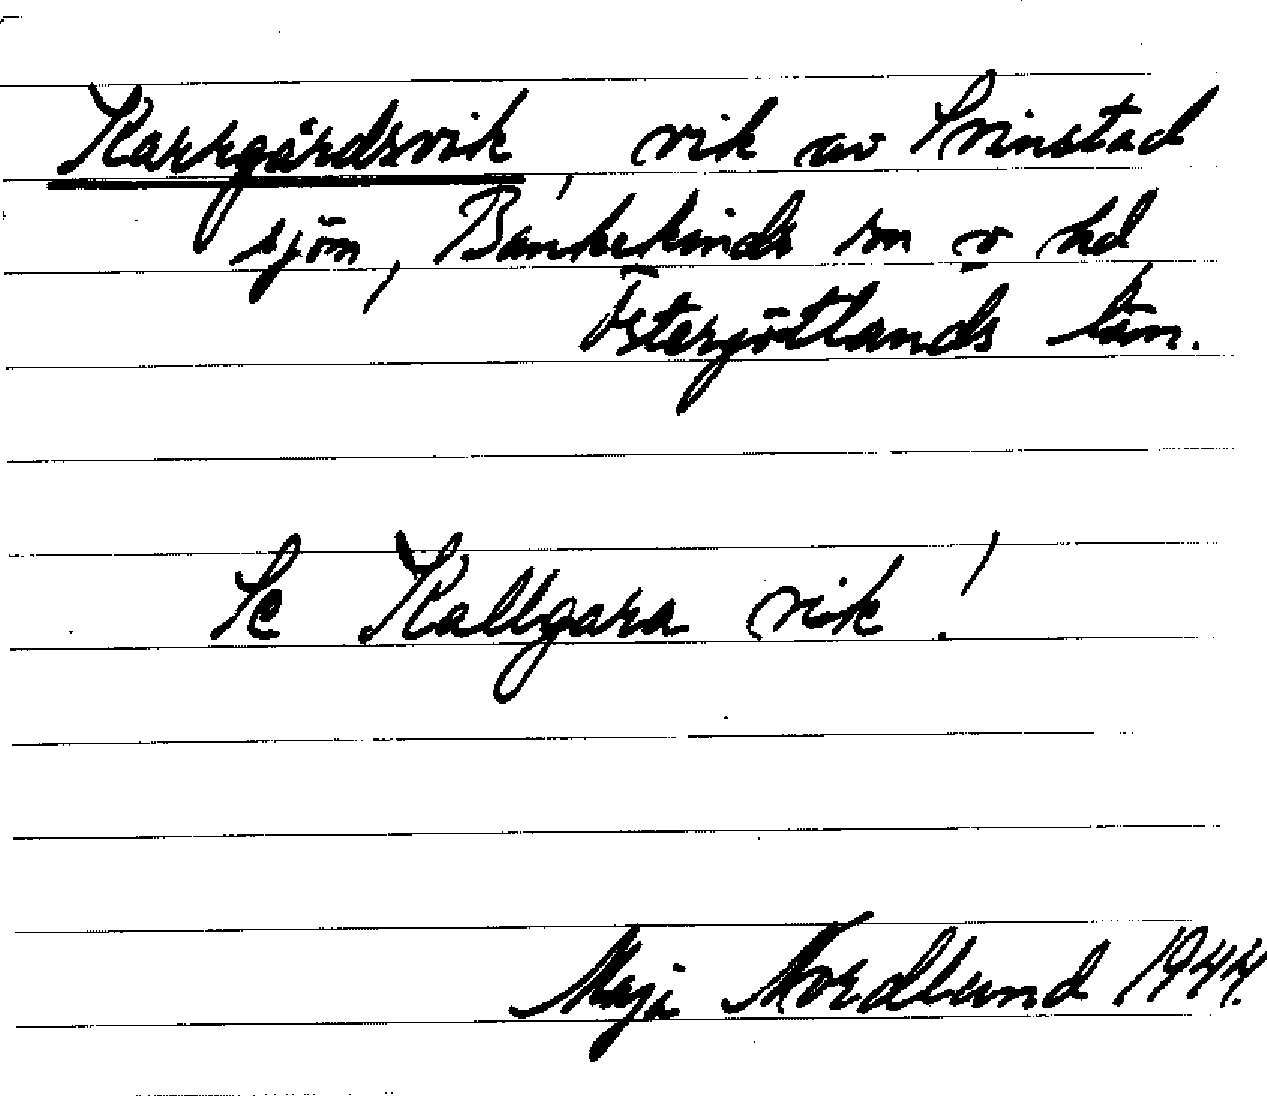 Karrgårdsvik, vik av Svinstad
sjön, Bankekinds sn o hd
Östergötlands län.
Se Kallgara vik!
Maja Nordlund 1944.